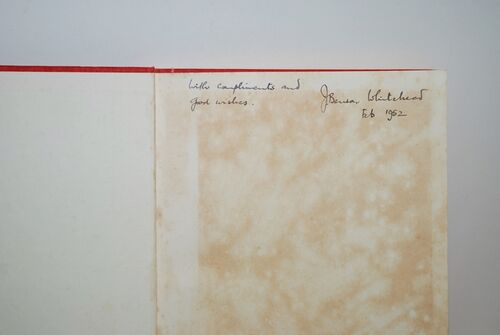 with compliments and
good wishes.
J Benson Whitehead
Feb 1962